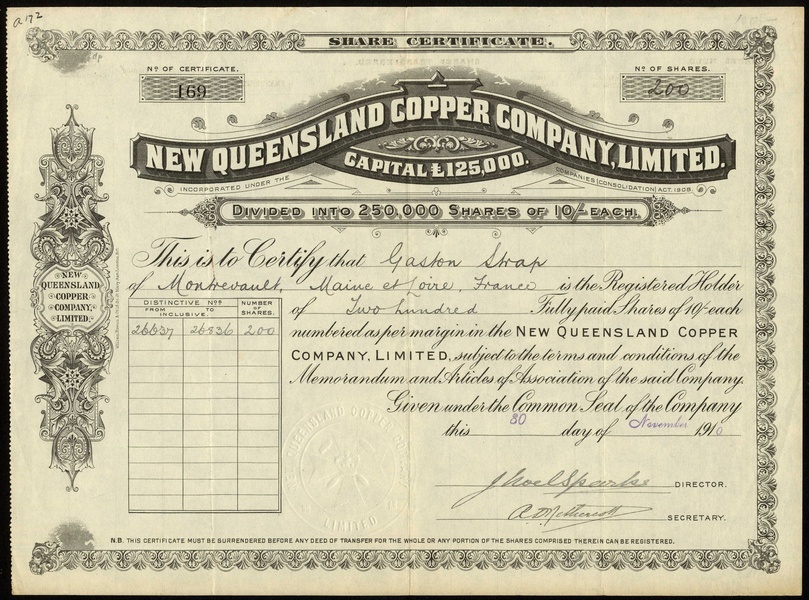 a 172
SHARE CERTIFICATE.
No OF CERTIFICATE.
169
No OF SHARES.
200
NEW QUEENSLAND COPPER COMPANY, LIMITED.
CAPITAL £125,000.
INCORPORATED UNDER THE COMPANIES (CONSOLIDATION) ACT. 1908.
DIVIDED INTO 250,000 SHARES OF 10/- EACH.
This is to Certify that Gaston Strap
of Montrevault, Maine et Loire, France is the Registered Holder
of Two hundred Fully paid Shares of 10/- each
numbered as per margin in the NEW QUEENSLAND COPPER
COMPANY, LIMITED, subject to the terms and conditions of the
Memorandum and Articles of Association of the said Company.
Given under the Common Seal of the Company
this 30 day of November 1910
NEW
QUEENSLAND
COPPER
COMPANY,
LIMITED.
DISTINCTIVE Nos
FROM TO
INCLUSIVE.
NUMBER
OF
SHARES.
26637 26836 200
QUEENSLAND COPPER
LIMITED
J Noel Sparke DIRECTOR.
SECRETARY.
N.B. THIS CERTIFICATE MUST BE SURRENDERED BEFORE ANY DEED OF TRANSFER FOR THE WHOLE OR ANY PORTION OF THE SHARES COMPRISED THEREIN CAN BE REGISTERED.